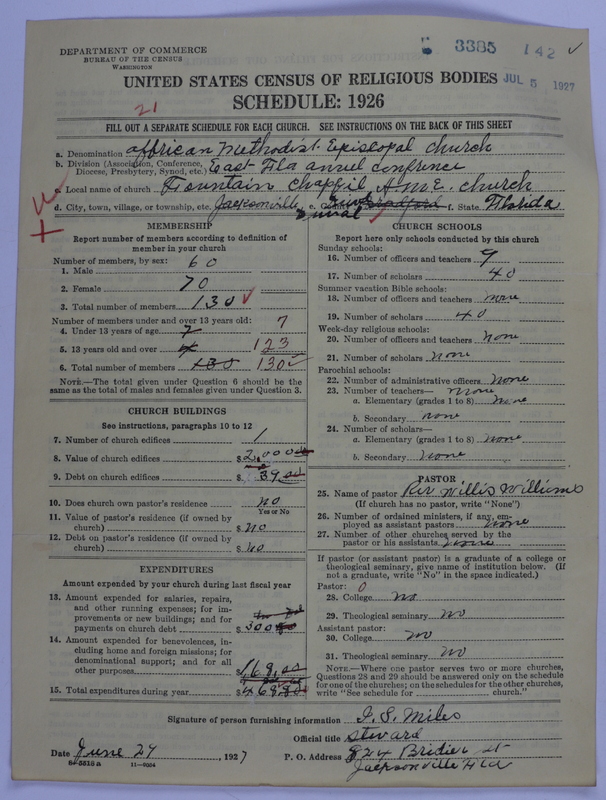 DEPARTMENT OF COMMERCE
BUREAU OF THE CENSUS
WASHINGTON
3385 142 ✓
UNITED STATES CENSUS OF RELIGIOUS BODIES JUL 5 1927
SCHEDULE: 1926
21
FILL OUT A SEPARATE SCHEDULE FOR EACH CHURCH. SEE INSTRUCTIONS ON THE BACK OF THIS SHEET
a. Denomination African Methodist Episcopal church
b. Division (Association, Conference, Diocese, Presbytery, Synod, etc.) East Fla annul confrence
c. Local name of church Fountain Chappil A.M.E. church
d. City, town, village, or township, etc. Jacksonville e. County Duval f. State Florida
MEMBERSHIP
Report number of members according to definition of
member in your church
Number of members, by sex:
1. Male 60
2. Female 70
3. Total number of members 130 ✓
Number of members under and over 13 years old:
4. Under 13 years of age 7 7
5. 13 years old and over 123
6. Total number of members 130 130 ✓
NOTE.—The total given under Question 6 should be the
same as the total of males and females given under Question 3.
CHURCH BUILDINGS
See instructions, paragraphs 10 to 12
7. Number of church edifices 1
8. Value of church edifices $2,000
9. Debt on church edifices $ 39.00
10. Does church own pastor's residence no
Yes or No
11. Value of pastor's residence (if owned by
church) $ no
12. Debt on pastor's residence (if owned by
church) $ no
EXPENDITURES
Amount expended by your church during last fiscal year
13. Amount expended for salaries, repairs,
and other running expenses; for im-
provements or new buildings; and for
payments on church debt $ 300
14. Amount expended for benevolences, in-
cluding home and foreign missions; for
denominational support; and for all
other purposes $168.00
15. Total expenditures during year $468.80
CHURCH SCHOOLS
Report here only schools conducted by this church
Sunday schools:
16. Number of officers and teachers 9
17. Number of scholars 40
Summer vacation Bible schools:
18. Number of officers and teachers none
19. Number of scholars 40
Week-day religious schools:
20. Number of officers and teachers none
21. Number of scholars none
Parochial schools:
22. Number of administrative officers none
23. Number of teachers— none
a. Elementary (grades 1 to 8) none
b. Secondary none
24. Number of scholars—
a. Elementary (grades 1 to 8) none
b. Secondary none
PASTOR
25. Name of pastor Rev Willis Williams
(If church has no pastor, write "None")
26. Number of ordained ministers, if any, em-
ployed as assistant pastors none
27. Number of other churches served by the
pastor or his assistants none
If pastor (or assistant pastor) is a graduate of a college or
theological seminary, give name of institution below. (If
not a graduate, write "No" in the space indicated.)
Pastor: 0
28. College no
29. Theological seminary no
Assistant pastor:
30. College no
31. Theological seminary no
NOTE.—Where one pastor serves two or more churches,
Questions 28 and 29 should be answered only on the schedule
for one of the churches; on the schedules for the other churches,
write "See schedule for church."
Signature of person furnishing information J. S. Miles
Official title steward
Date June 27, 1927 P. O. Address 824 Bridier st
8-5518a 11-9304 Jacksonville Fla